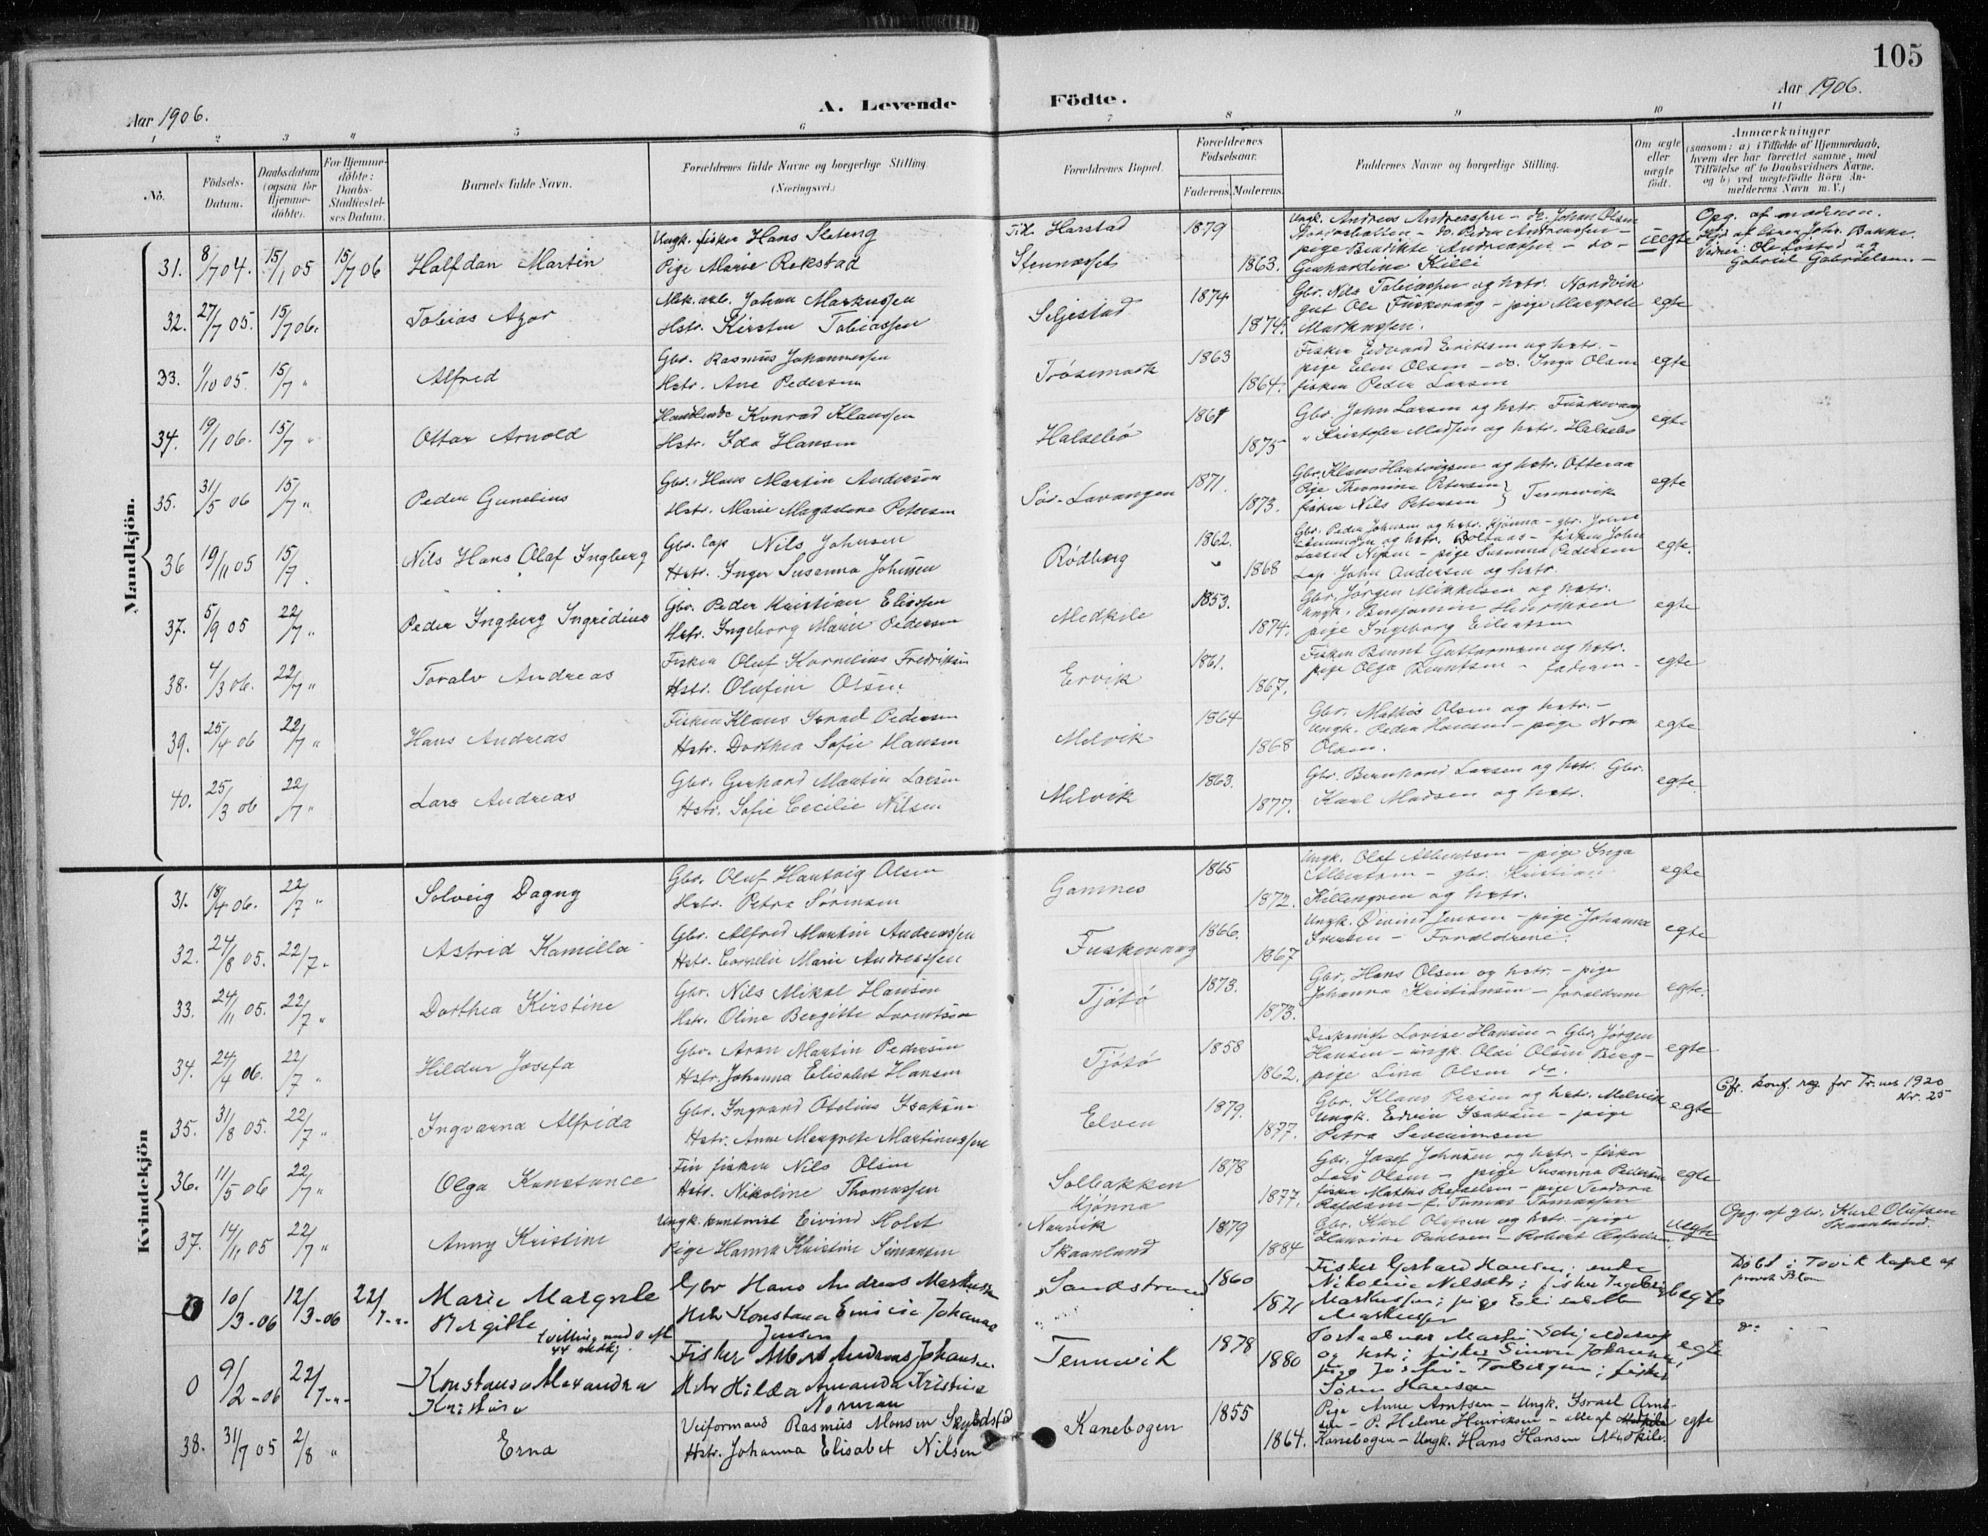 105
Aar 1906.
A. Levende Födte.
Aar 1906.
1 2 3 4 5 6 7 8 9 10 11
No.
Födsels-Datum.
Daabsdatum (ogsaa for Hjemmedöbte).
For Hjemmedöbte: Daabs-Stadfæstelses Datum.
Barnets fulde Navn.
Forældrenes fulde Navne og borgerlige Stilling (Næringsvei.)
Forældrenes Bopæl.
Forældrenes Födselsaar.
Faderens. Moderens.
Faddernes Navne og borgerlige Stilling.
Om ægte eller uægte födt.
Anmærkninger
(saasom: a) i Tilfælde af Hjemmedaab, hvem der har forrettet samme, med Tilföielse af to Daabsvidners Navne, og b) ved uægtefödte Börn Anmelderens Navn m. V.)
Mandkjön.
31. 8/7 04. 15/1 05 15/7 06 Halfdan Martin
Ungk. fisker Hans Sleteng
Pige Marie Rekstad
Harstad
Stennesset
1879 1863.
Ungk. Andreas Andreassen – do. Johan Olsen
do. Peder Andreassen –
pige Benedikte Andreassen – do –
Gerhardine Killi
uegte
Opg. af moderen.
Ole Losted og
Gabriel Gabrielsen. –
32. 27/7 05. 15/7 06. Tobias Azor
Johan Markussen
Hstr. Kirsten Tobiassen
Seljestad
1874 1874.
Gbr. Nils Tobiassen og hstr. Nordvik
gut Ole Fuskevaag – pige Margrete
Markussen.
egte
33. 1/10 05. 15/7 " Alfred
Gbr. Rasmus Johannessen
Hstr. Ane Pedersen
Trøsemark
1863 1864.
Fisker Edvard Eriksen og hstr. –
pige Elen Olsen – do. Inga Olsen
fisker Peder Larsen
egte
34. 19/1 06. 15/7 " Ottar Arnold
Handlende Konrad Klaussen
Hstr. Ida Hansen
Halsebø
1861 1875
Gbr. John Larsen og hstr. Fuskevaag
" Kristofer Madsen og hstr. Halsebø
egte
35. 31/5 06 15/7 " Peder Gunelius
Gbr. Hans Martin Andersen
Hstr. Marie Magdalene Petersen
Sør-Lavangen
1871. 1873.
Gbr. Klaus Hartvigsen og hstr. Otteraa
Pige Thermine Petersen
fisker Nils Petersen } Tennevik
egte
36 19/11 05 15/7. Nils Hans Olaf Ingberg
Gbr. lap Nils Johnsen
Hstr. Inger Susanna Johnsen
Rødberg
1862. 1868
Gbr. Peder Johnsen og hstr. Kjønna – gbr. Johan
og hstr. Boltaas – fisker John
Larsen – pige Susanna Pedersen
Lap. John Andersen og hstr.
egte.
37. 5/9 05 22/7 " Peder Ingberg Ingridius
Gbr. Peder Kristian Eliassen
Hstr. Ingeborg Marie Pedersen
Medkile
1853. 1874.
Gbr. Jørgen Mikkelsen og hstr.
Ungk. Benjamin Henriksen
pige Ingeborg Eilertsen
egte
38. 4/3 06. 22/7 " Toralv Andreas
Fisker Oluf Kornelius Fredriksen
Hstr. Olufine Olsen.
Ervik
1861. 1867.
Fisker Bernt Guttormsen og hstr.
pige Olga Berntsen – faderen –
egte
39. 25/4 06 22/7 " Hans Andreas
Fisker Klaus Israel Pedersen
Hstr. Dorthea Sofie Hansen
Melvik
1864 1868
Gbr. Mathis Olsen og hstr. –
Ungk. Peder Hansen – pige Nora
Olsen.
egte
40. 25/3 06 22/7 " Lars Andreas
Gbr. Gerhard Martin Larsen
Hstr. Sofie Cecilie Nilsen
Melvik
1863. 1877.
Gbr. Bernhard Larsen og hstr. Gbr.
Karl Madsen og hstr.
egte.
Kvindekjön
31. 18/4 06. 22/7 " Solveig Dagny
Gbr. Oluf Hartvig Olsen
Hstr. Petra Sørensen
Gamnes
1865 1872.
Ungk. Olaf Albertsen – pige Inga
Albertsen – gbr. Kristian
Killengren og hstr.
egte
32. 24/8 05. 22/7 " Astrid Kamilla
Gbr. Alfred Martin Andreassen
Hstr. Cornelie Marie Andreassen
Fuskevaag
1866. 1867
Ungk. Øivind Jensen – pige Johanna
Iversen – Forældrene.
egte
33. 24/11 05. 22/7 " Dorthea Kirstine
Gbr. Nils Mikal Hansen
Hstr. Oline Bergitte Lorentsen
Tjøtø
1873. 1873.
Gbr. Hans Olsen og hstr. – pige
Johanna Kristiansen – forældrene
egte.
34. 24/4 06. 22/7 " Hildur Josefa
Gbr. Aron Martin Pedersen
Hstr. Johanna Elisabet Hansen
Tjøtø
1858 1862.
Lovise Hansen – Gbr. Jørgen
Hansen – ungk. Olai Olsen Berg –
pige Lina Olsen do.
egte
35. 31/8 05. 22/7 " Ingvarna Alfrida
Gbr. Ingvard Otelius Isaksen
Hstr. Anne Margrete Martinussen
Elven
1879. 1877.
Gbr. Klaus Piersen og hstr. Melvik
Ungk. Edvin Isaksen – pige
Petra Severinsen
egte
Cfr. konf. reg. for Tr.nes 1920
Nr. 25
36. 11/5 06 22/7 " Olga Konstance
Fin fisker Nils Olsen
Hstr. Nikoline Thomassen
Solbakken
Kjønna
1878 1877.
Gbr. Josef Johnsen og hstr. – fisker
Lars Olsen – pige Susanna Pedersen
fisker Mathis Rafaelsen – pige Teodora
Rafaelsen – f. Tomas Tomassen
egte
37. 14/11 05 22/7 " Anny Kristine
Ungk. kunstnist Eivind Holst
Pige Hanna Kristine Simonsen
Narvik
Skaanland
1879 1884
Gbr. Karl Olufsen og hstr. – pige
Hansine Paulsen – Robert Olufsen
uegte
Opg. af gbr. Karl Olufsen
Skaanland.
0 10/3-06 12/3-06 22/7-" Marie Margrete
Bergitte
tvilling med 0
44 mdkj.
Gbr Hans Andreas Markussen
Hstr Konstanse Emilie Johanne
Jensen
Sandstrand
1860 1871
Fisker Gerhard Hansen; enke
Nikoline Nilsdtr; fisker Ingebrigt
Markussen; pige Elen
Markussen
egte
Døbt i Tovik kapel af
0 9/2-06 22/7-" Konstanse Alexandra
Kristine
Fisker Albert Andreas Johansen
Hstr Hilda Amanda Kristine
Norman
Tennevik
1878 1880
Martin Schjelderup
og hstr; fisker Simon Johansen;
pige Josefine Torbergsen; fisker
Søren Hansen
egte
38. 31/7 05 2/8 " Erna
Veiformand Rasmus Monsen Skyldstad
Hstr. Johanna Elisabet Nilsen
Kanebogen
1855 1864.
Pige Anne Arntsen – Ungk. Israel Arnt-
sen – P. Helene Henriksen – alle af
Kanebogen – Ungk. Hans Hansen Medkile.
egte